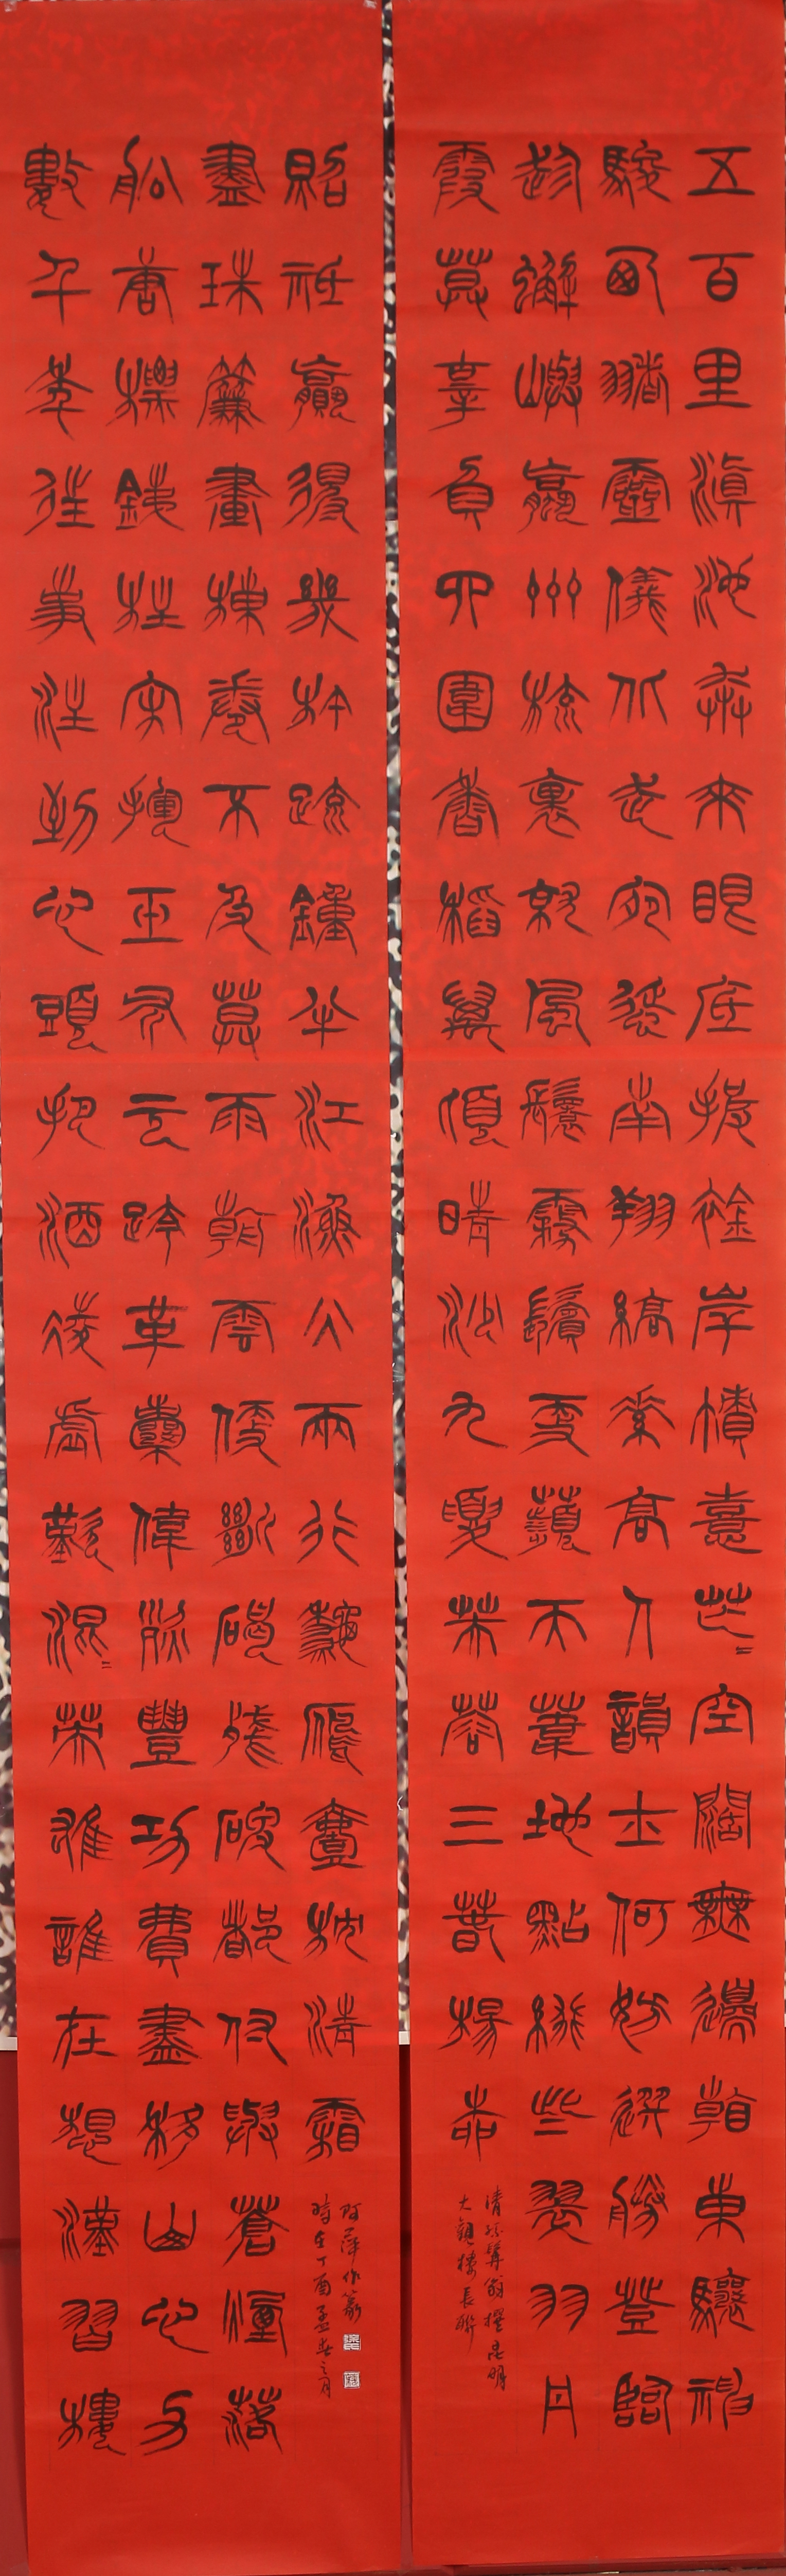 五百里滇池奔來眼底披襟岸幘喜茫〻空闊無邊看東驤神
駿西翥靈儀北走宛蜒南翔縞素高人韻士何妨選勝登臨
趁蟹嶼螺州梳裹就風鬟霧鬢更蘋天葦地點綴些翠羽丹
霞莫辜負四圍香稻萬頃晴沙九夏芙蓉三春楊柳
清孫髯翁撰昆明
大觀樓長聯
數千年往事注到心頭把酒凌虛歎混〻英雄誰在想漢習樓
船唐標鐵柱宋揮玉斧元跨革囊偉烈豐功費盡移山心力
盡珠簾畫棟卷不及暮雨朝雲便斷碣殘碑都付與蒼煙落
照祗贏得幾杵疏鐘半江漁火兩行秋雁壹枕清霜
阿萍作篆
時在丁酉孟春之月